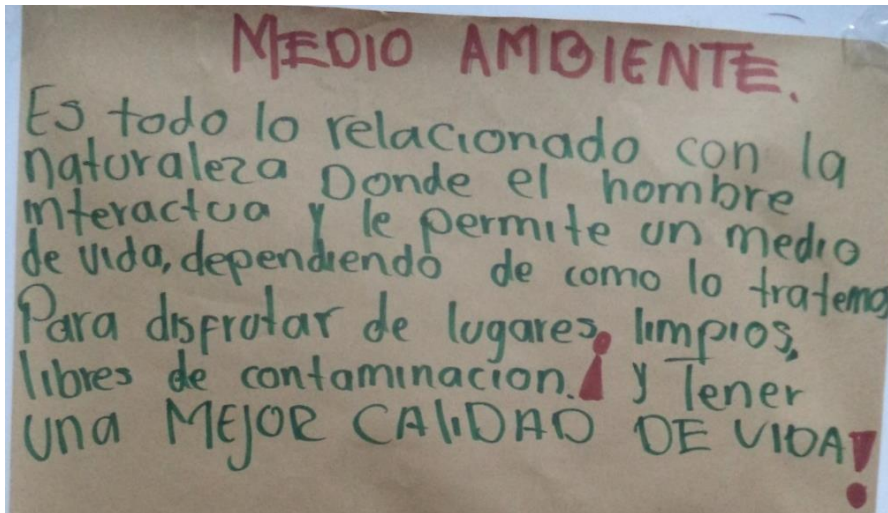 MEDIO AMBIENTE.
Es todo lo relacionado con la
naturaleza Donde el hombre
interactua y le permite un medio
de vida, dependiendo de como lo tratemos
Para disfrutar de lugares, limpios,
libres de contaminacion. ¡ y Tener
una MEJOR CALIDAD DE VIDA!